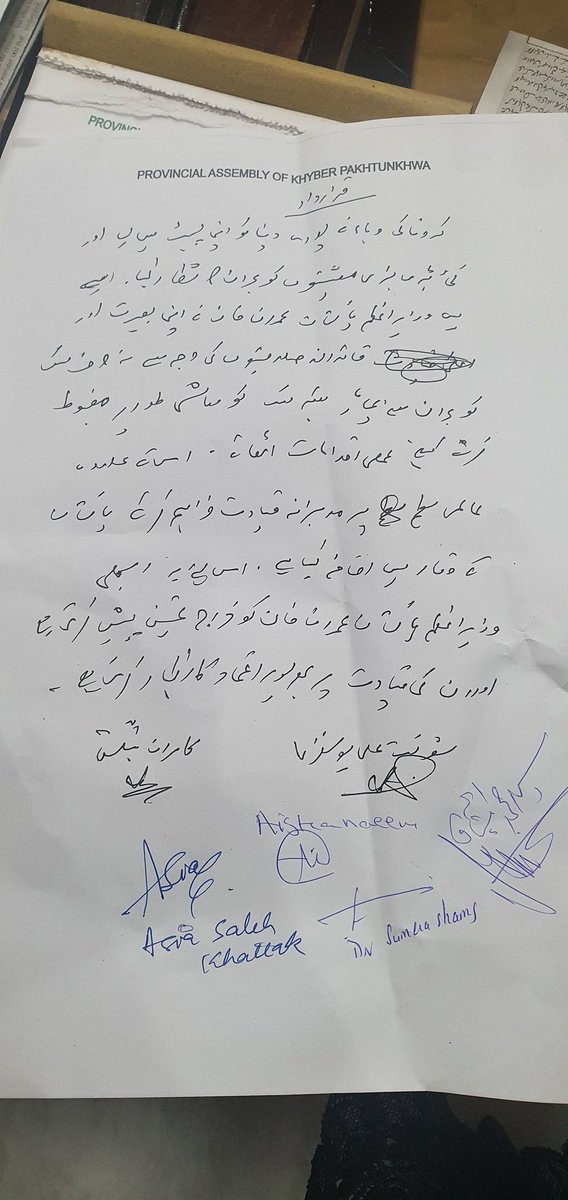 PROVINCIAL ASSEMBLY OF KHYBER PAKHTUNKHWA
قرارداد
کرونا کی وباء نے پورے دنیا کو اپنی لپیٹ میں لیا اور
کئی بڑی بڑی معیشتوں کو بحران کا شکار کیا۔ ایسے
میں وزیر اعظم پاکستان عمران خان نے اپنی بصیرت اور
قائدانہ صلاحیتوں کی وجہ سے نہ صرف ملک
کو بحران سے بچایا بلکہ ملک کو معاشی طور پر مضبوط
کرنے کیلئے عملی اقدامات اٹھائے۔ اس کے علاوہ
عالمی سطح پر مدبرانہ قیادت فراہم کرکے پاکستان
کے وقار میں اضافہ کیا ہے۔ اس لئے یہ اسمبلی
وزیر اعظم پاکستان عمران خان کو خراج تحسین پیش کرتی ہے
اور ان کی قیادت پر بھرپور اعتماد کا اظہار کرتی ہے۔
شوکت علی یوسفزئی
کامران بنگش
Aisha naeem
Asia
Asia Saleh
Khattak
Dr Sumera Shams